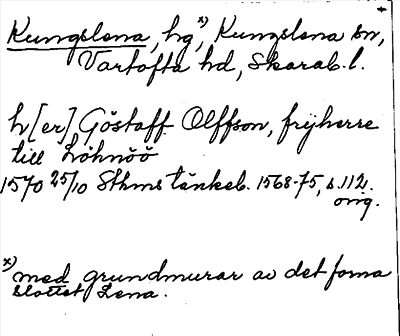 Kungslena, hg x), Kungslena sn,
Vartofta hd, Skarab. l.
h[er] Göstaff Olffson, frijherre
till Löhnöö
1570 25/10 Sthms tänkeb. 1568-75, s. 112.
orig.
x) med grundmurar av det forna
slottet Lena.